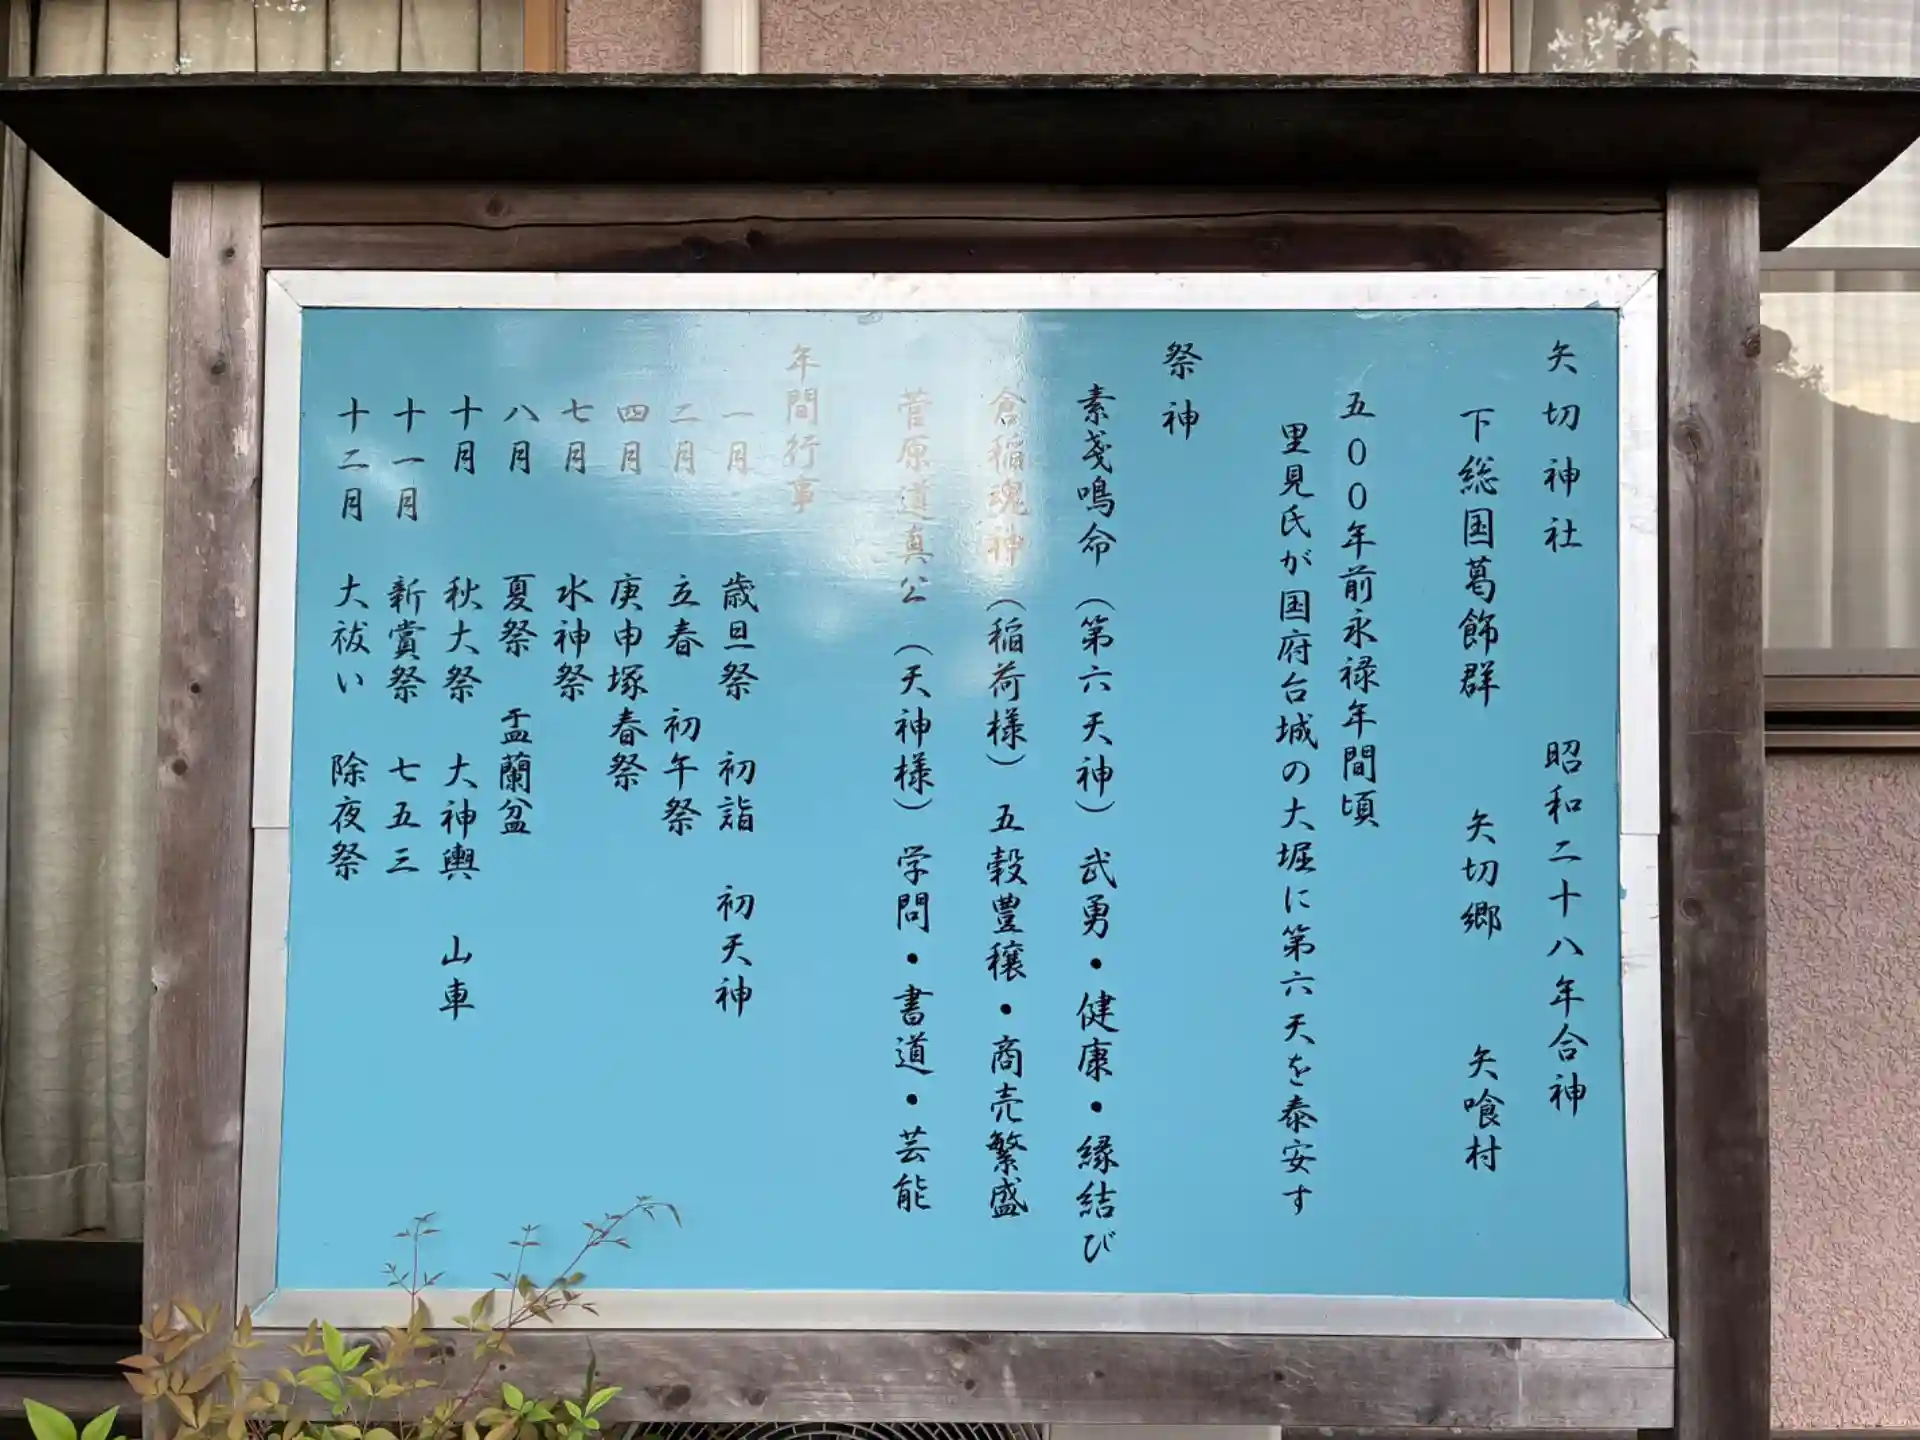 矢切神社　昭和二十八年合神
下総国葛飾群　矢切郷　矢喰村
五００年前永禄年間頃
里見氏が国府台城の大堀に第六天を泰安す
祭神
素戔鳴命（第六天神）武勇・健康・縁結び
倉稲魂神（稲荷様）五穀豊穣・商売繁盛
菅原道真公（天神様）学問・書道・芸能
年間行事
一月　歳旦祭　初詣　初天神
二月　立春　初午祭
四月　庚申塚春祭
七月　水神祭
八月　夏祭　盂蘭盆
十月　秋大祭　大神輿　山車
十一月　新賞祭　七五三
十二月　大祓い　除夜祭